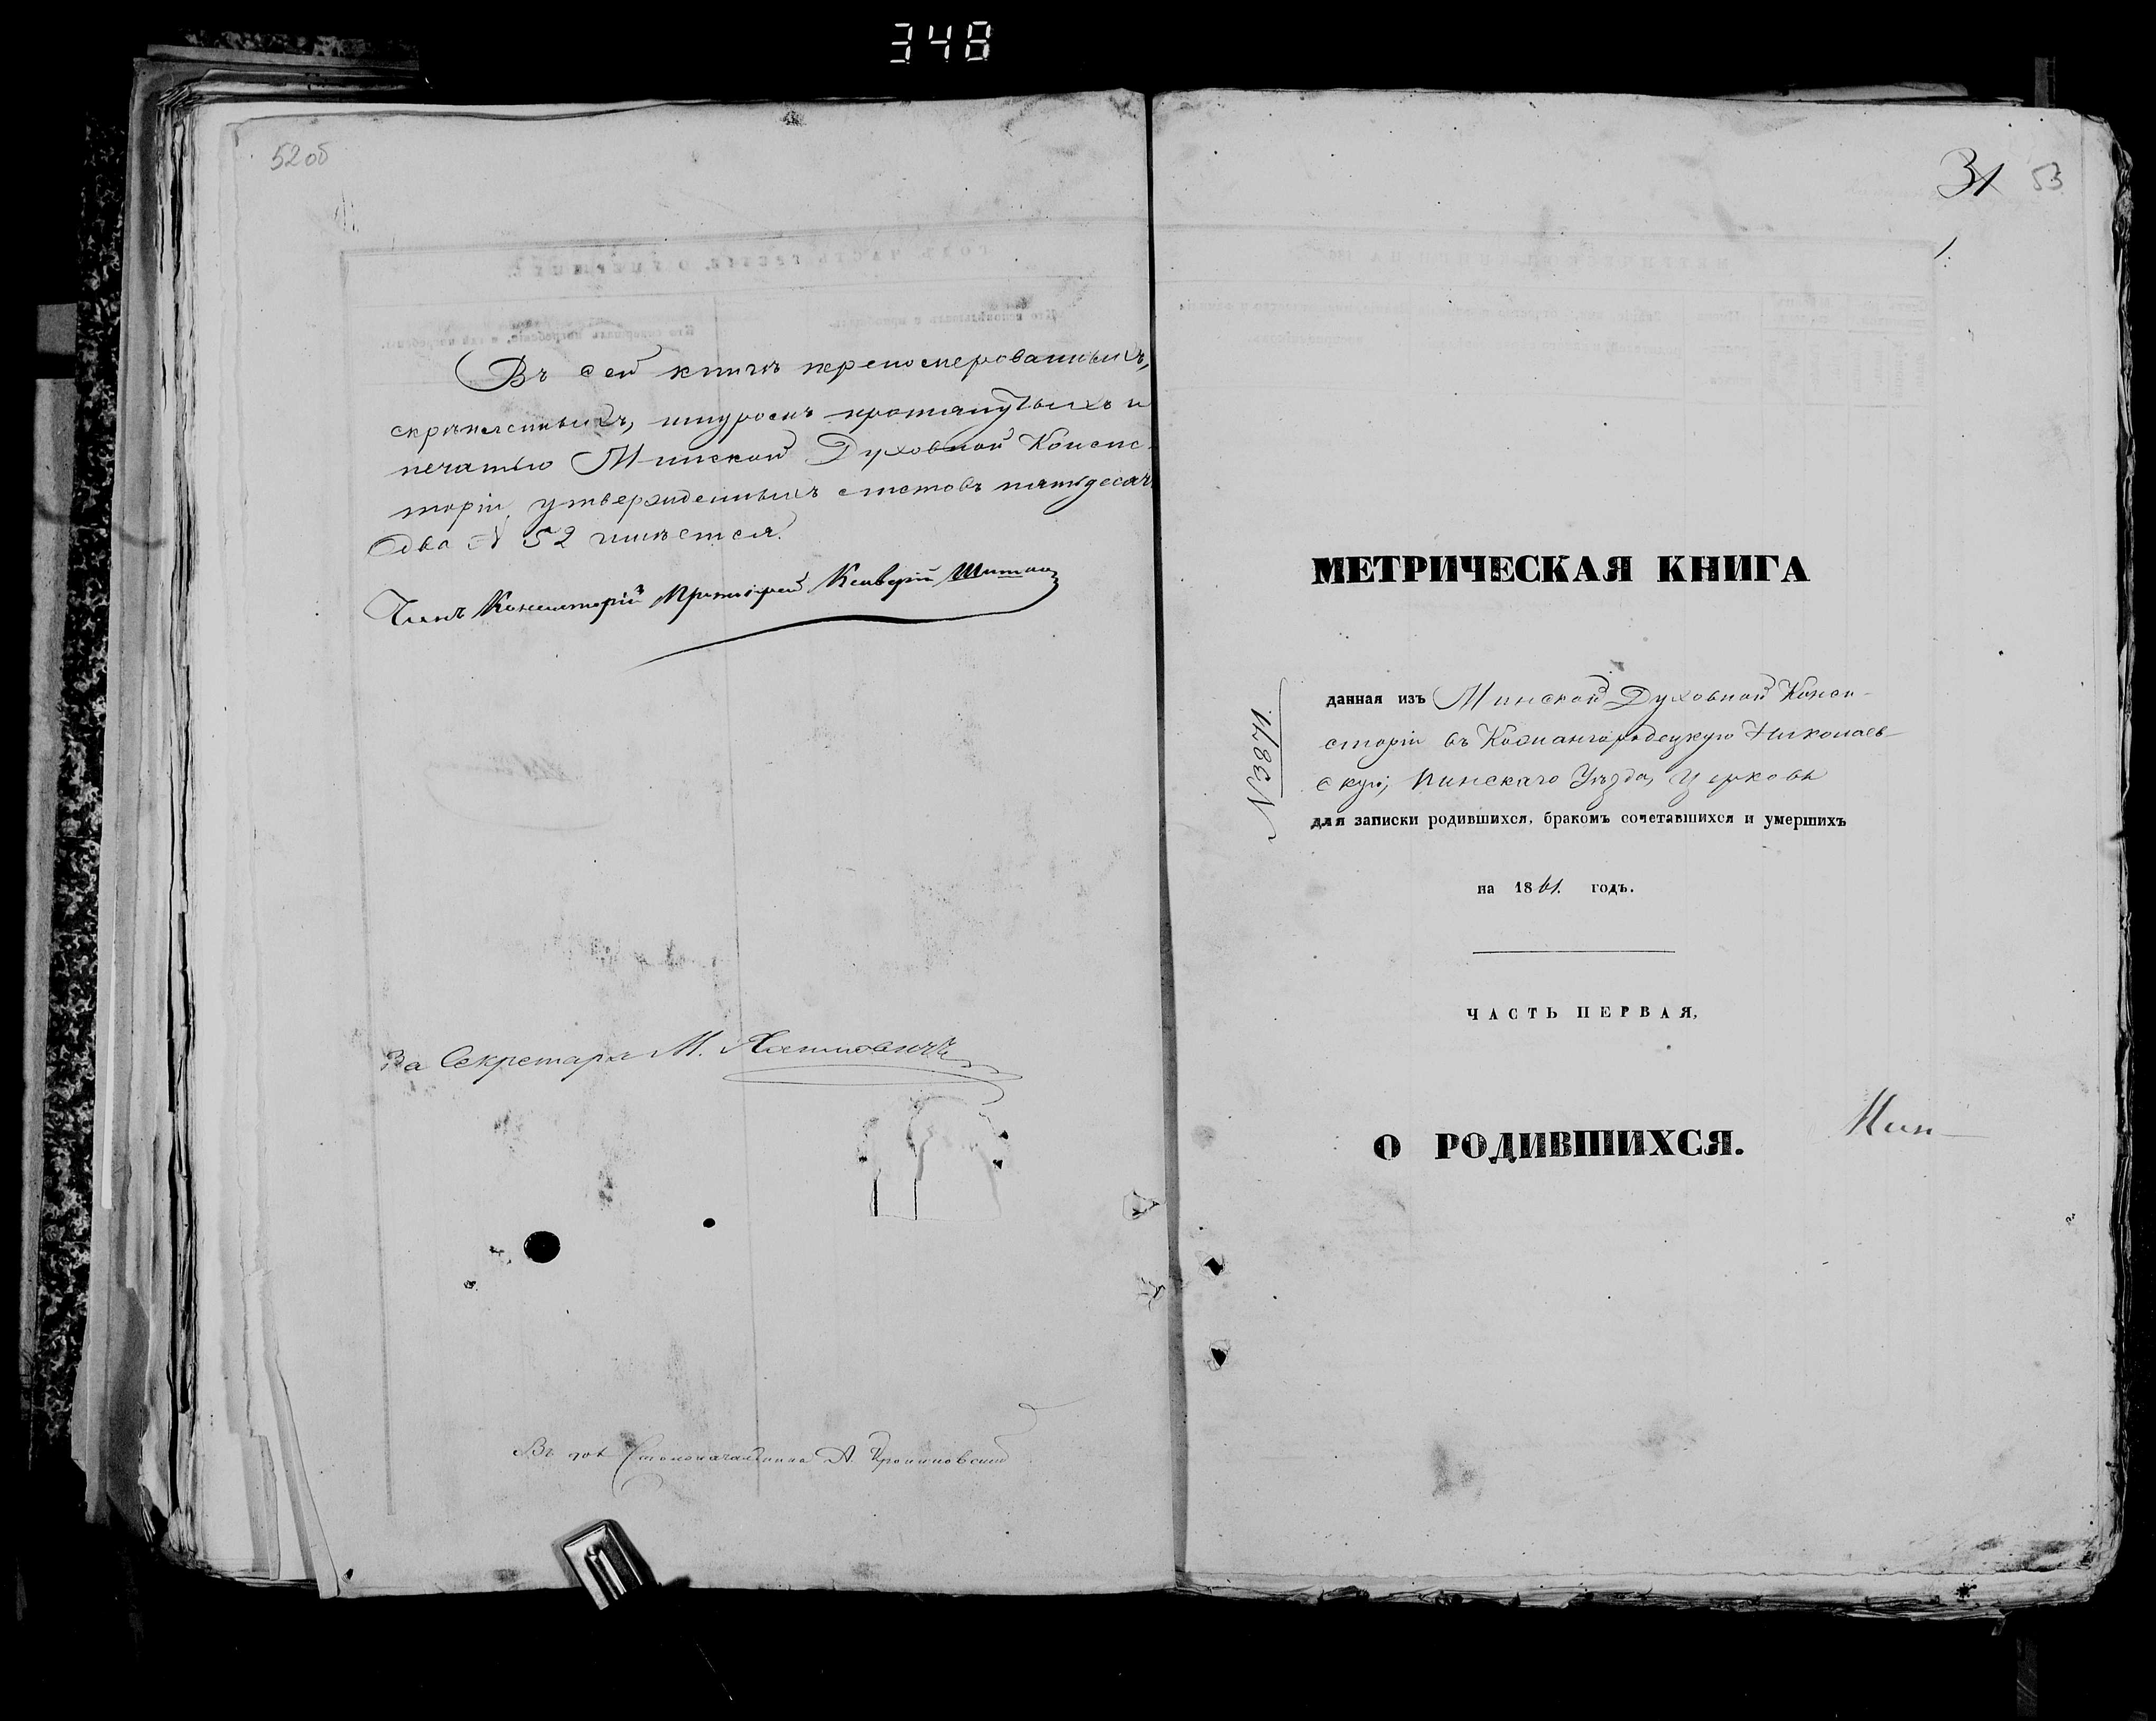 348
52 об
Въ сей книгѣ перенумерованныхъ,
скрѣпленныхъ, шнуромъ протянутыхъ и
печатью Минской Духовной Консис-
торіи утвержденныхъ листовъ пятьдесятъ
два № 52 имѣется.
Членъ Консисторіи Протоіерей
За Секретаря М.
Въ дол Столоначальника А.
31 53
1.
МЕТРИЧЕСКАЯ КНИГА
№ 3871.
данная изъ Минской Духовной Конси-
сторіи въ Кожангородецкую Николаев-
скую, Пинскаго Уѣзда, Церковь
для записки родившихся, бракомъ сочетавшихся и умершихъ
на 1861. годъ.
ЧАСТЬ ПЕРВАЯ,
О РОДИВШИХСЯ.